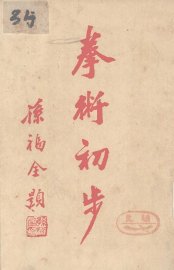 拳術初步
孫福全題